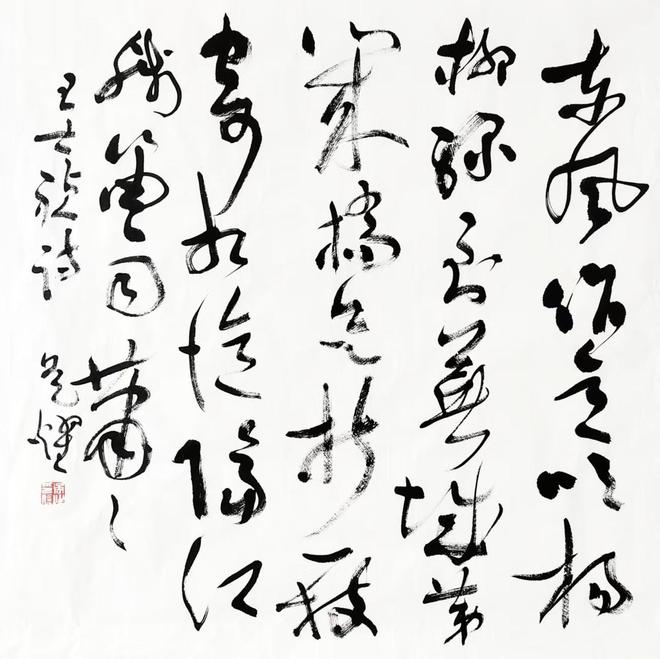 东风作意吹杨
柳绿到芜城第
几桥欲折一枝
寄相忆隔江
残笛雨萧〻
王士禛诗